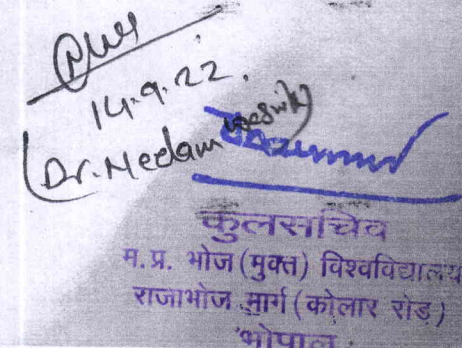 14.9.22.
(Dr. Neelam
कुलसचिव
म.प्र. भोज (मुक्त) विश्वविद्यालय
राजाभोज मार्ग (कोलार रोड)
भोपाल